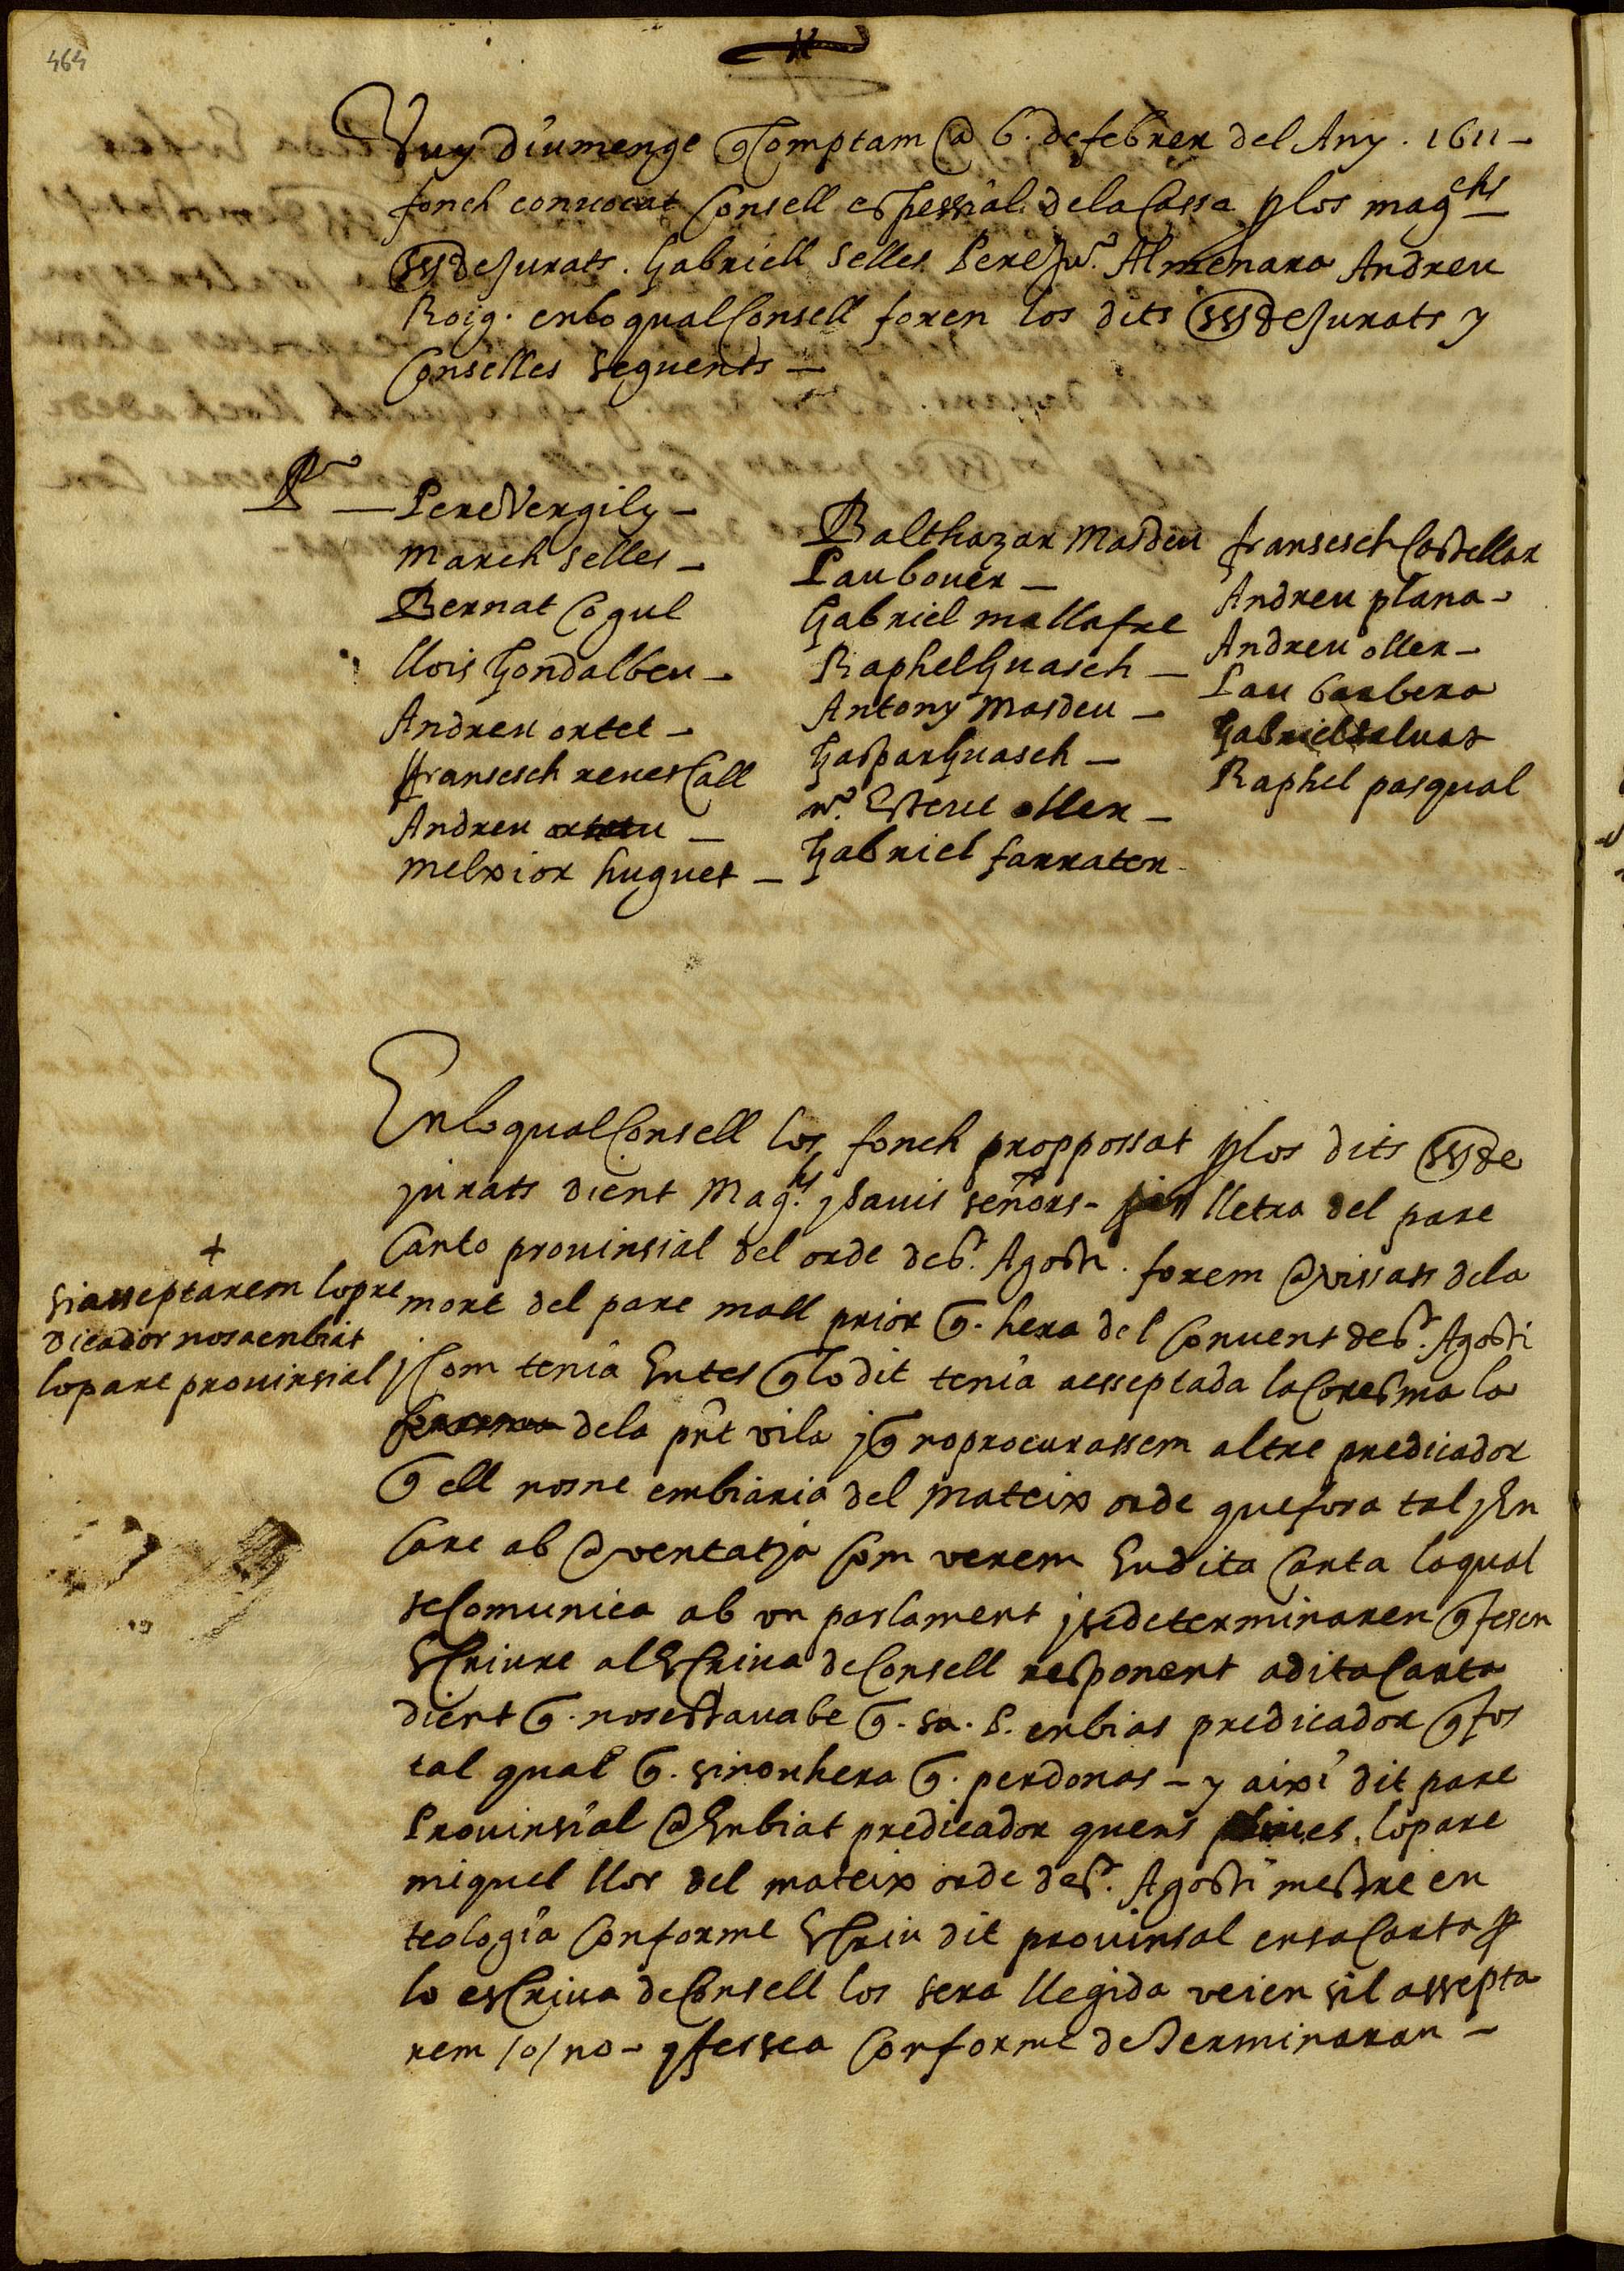 464
Vuy diumenge Comptam a 6. de febrer del Any. 1611 -
fonch conuocat Consell espessial de la Cassa p los magchs
ss de Jurats. Gabriell Selles Pere Ju. Almenara Andreu
Roig. en lo qual Consell foren los dits ss de Jurats y
Conselles seguents -
Pr — Pere Vergily -
March Selles -
Bernat Cogul
llois Gondalbeu -
Andreu ortet -
ffransesch reues Call
Andreu
Melxior huguet -
Balthazar Masdeu
Pau bouer -
Gabriel mallafre
Raphel Guasch -
Antony Masdeu -
Gaspar Guasch -
Mo. Esteue oller -
Gabriel farrater
fransesch Castellar
Andreu plana -
Andreu oller -
Pau barbera
Gabriel saluat
Raphel pasqual
En lo qual Consell los fonch proppossat p los dits ss de
jurats dient Mag.chs j sauis señors - per lletra del pare
Canto prouinsial del orde de St. Agosti. forem avissats de la
mort del pare mall prior q. hera del Conuent de St. Agosti
j Com tenia Entes q lo dit tenia acsseptada la Coresma la
de la pnt vila j q no procurassem altre predicador
q ell nos ne embiaria del mateix orde que fora tal j En
Care ab aventatja Com verem En dita Carta la qual
se Comunica ab vn parlament j se determinaren q fesen
EsCriure al EsCriua de Consell responent a dita Carta
dient q. nos estaua be q. sa. P. enbias predicador q fos
tal qual q. sino nhera q. perdonas - y aixi dit pare
Prouinsial a Enbiat predicador quens es, lo pare
miquel llor del mateix orde de St. Agosti mestre en
teologia Conforme EsCriu dit prouinsal en sa Carta q p
lo esCriua de Consell los sera llegida veien sil assepta
rem /o/ no - q fessea Conforme determinaran -
+
Si asseptarem lo pre
dicador nos a enbiat
lo pare prouinsial